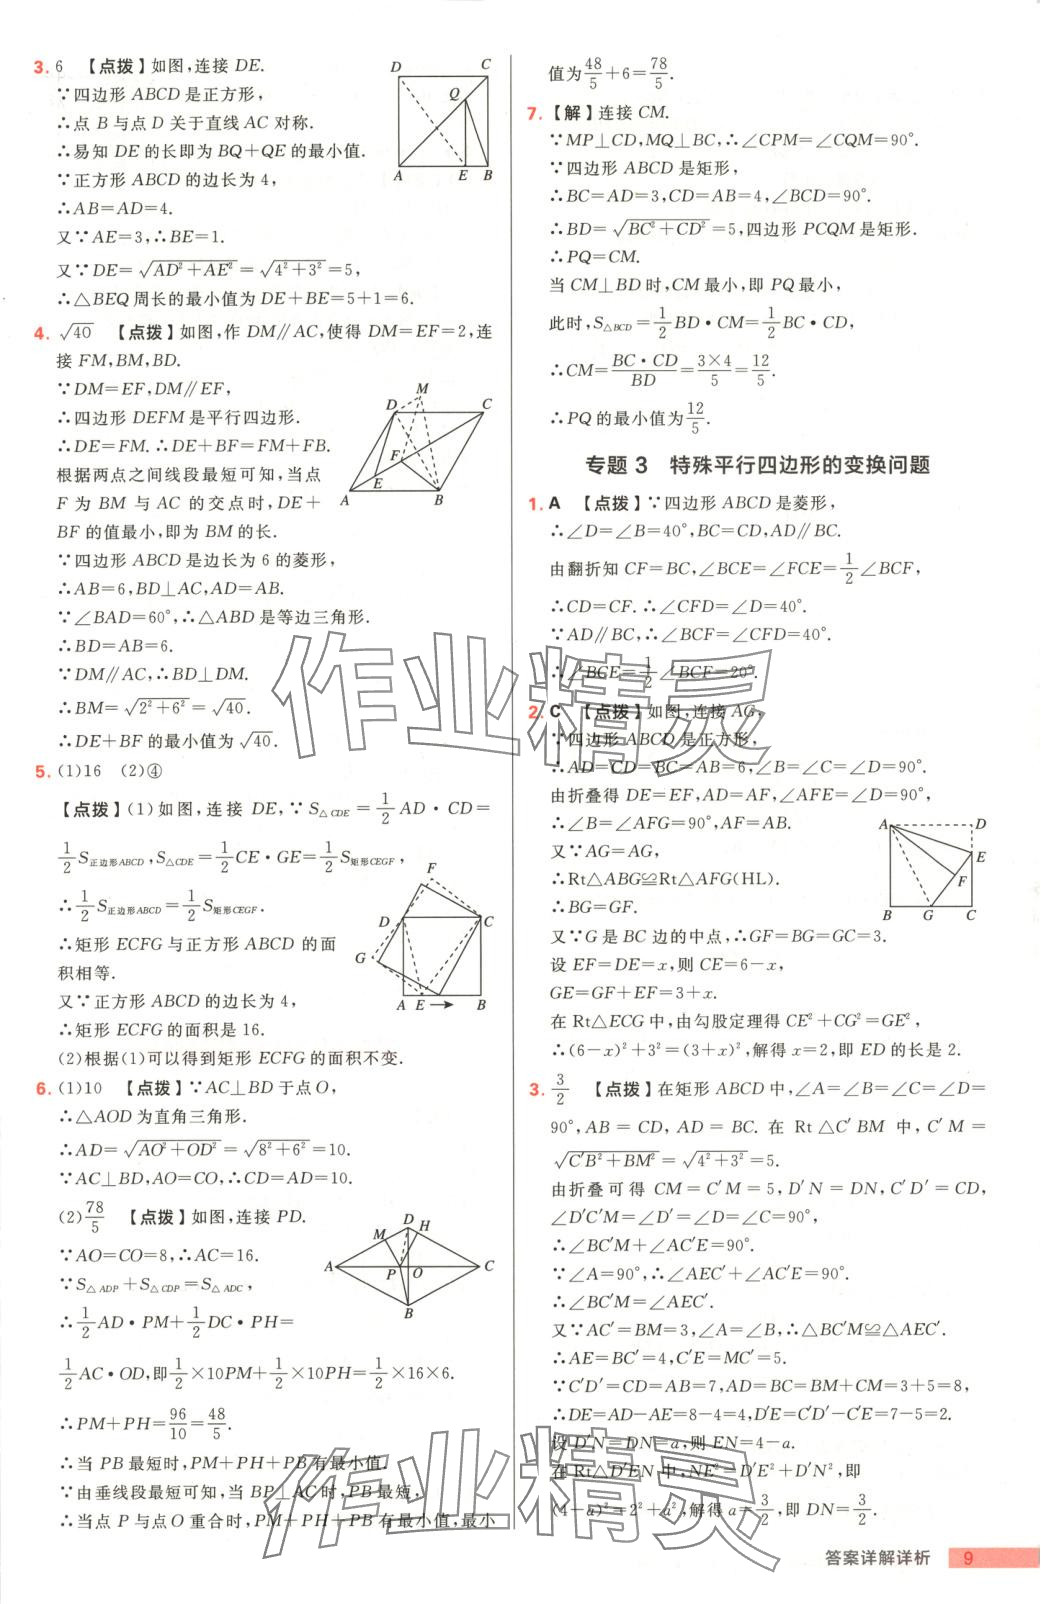 3. 6 【点拨】如图,连接 DE.
∵四边形 ABCD 是正方形,
∴点 B 与点 D 关于直线 AC 对称.
∴易知 DE 的长即为 BQ+QE 的最小值.
∵正方形 ABCD 的边长为 4,
∴AB=AD=4.
又∵AE=3,∴BE=1.
又∵DE=√(AD²+AE²)=√(4²+3²)=5,
∴△BEQ 周长的最小值为 DE+BE=5+1=6.
D C Q A E B
4. √40 【点拨】如图,作 DM∥AC,使得 DM=EF=2,连
接 FM,BM,BD.
∵DM=EF,DM∥EF,
∴四边形 DEFM 是平行四边形.
∴DE=FM.∴DE+BF=FM+FB.
根据两点之间线段最短可知,当点
F 为 BM 与 AC 的交点时,DE+
BF 的值最小,即为 BM 的长.
M D C F E A B
∵四边形 ABCD 是边长为 6 的菱形,
∴AB=6,BD⊥AC,AD=AB.
∵∠BAD=60°,∴△ABD 是等边三角形.
∴BD=AB=6.
∵DM∥AC,∴BD⊥DM.
∴BM=√(2²+6²)=√40.
∴DE+BF 的最小值为√40.
5. (1)16 (2)④
【点拨】(1)如图,连接 DE,∵S△CDE=1/2 AD·CD=
1/2 S正边形ABCD,S△CDE=1/2 CE·GE=1/2 S矩形CEGF,
∴1/2 S正边形ABCD=1/2 S矩形CEGF.
∴矩形 ECFG 与正方形 ABCD 的面
积相等.
又∵正方形 ABCD 的边长为 4,
∴矩形 ECFG 的面积是 16.
(2)根据(1)可以得到矩形 ECFG 的面积不变.
F D C G A E B
6. (1)10 【点拨】∵AC⊥BD 于点 O,
∴△AOD 为直角三角形.
∴AD=√(AO²+OD²)=√(8²+6²)=10.
∵AC⊥BD,AO=CO,∴CD=AD=10.
(2)78/5 【点拨】如图,连接 PD.
∵AO=CO=8,∴AC=16.
∵S△ADP+S△CDP=S△ADC,
∴1/2 AD·PM+1/2 DC·PH=
1/2 AC·OD,即1/2×10PM+1/2×10PH=1/2×16×6.
D H M A P O C B
∴PM+PH=96/10=48/5.
∴当 PB 最短时,PM+PH+PB 有最小值.
∵由垂线段最短可知,当 BP⊥AC 时,PB 最短,
∴当点 P 与点 O 重合时,PM+PH+PB 有最小值,最小
值为48/5+6=78/5.
7. 【解】连接 CM.
∵MP⊥CD,MQ⊥BC,∴∠CPM=∠CQM=90°.
∵四边形 ABCD 是矩形,
∴BC=AD=3,CD=AB=4,∠BCD=90°.
∴BD=√(BC²+CD²)=5,四边形 PCQM 是矩形.
∴PQ=CM.
当 CM⊥BD 时,CM 最小,即 PQ 最小,
此时,S△BCD=1/2 BD·CM=1/2 BC·CD,
∴CM=BC·CD/BD=3×4/5=12/5.
∴PQ 的最小值为12/5.
专题 3 特殊平行四边形的变换问题
1. A 【点拨】∵四边形 ABCD 是菱形,
∴∠D=∠B=40°,BC=CD,AD∥BC.
由翻折知 CF=BC,∠BCE=∠FCE=1/2∠BCF,
∴CD=CF.∴∠CFD=∠D=40°.
∵AD∥BC,∴∠BCF=∠CFD=40°.
∴∠BCE=1/2∠BCF=20°.
2. C 【点拨】如图,连接 AG,
∵四边形 ABCD 是正方形,
∴AD=CD=BC=AB=6,∠B=∠C=∠D=90°.
由折叠得 DE=EF,AD=AF,∠AFE=∠D=90°,
∴∠B=∠AFG=90°,AF=AB.
又∵AG=AG,
∴Rt△ABG≌Rt△AFG(HL).
∴BG=GF.
A D E F B G C
又∵G 是 BC 边的中点,∴GF=BG=GC=3.
设 EF=DE=x,则 CE=6-x,
GE=GF+EF=3+x.
在 Rt△ECG 中,由勾股定理得 CE²+CG²=GE²,
∴(6-x)²+3²=(3+x)²,解得 x=2,即 ED 的长是 2.
3. 3/2 【点拨】在矩形 ABCD 中,∠A=∠B=∠C=∠D=
90°,AB=CD,AD=BC.在 Rt△C′BM 中,C′M=
√(C′B²+BM²)=√(4²+3²)=5.
由折叠可得 CM=C′M=5,D′N=DN,C′D′=CD,
∠D′C′M=∠D′=∠D=∠C=90°,
∴∠BC′M+∠AC′E=90°.
∵∠A=90°,∴∠AEC′+∠AC′E=90°.
∴∠BC′M=∠AEC′.
又∵AC′=BM=3,∠A=∠B,∴△BC′M≌△AEC′.
∴AE=BC′=4,C′E=MC′=5.
∵C′D′=CD=AB=7,AD=BC=BM+CM=3+5=8,
∴DE=AD-AE=8-4=4,D′E=C′D′-C′E=7-5=2.
设 D′N=DN=a,则 EN=4-a.
在 Rt△D′EN 中,NE²=D′E²+D′N²,即
(4-a)²=2²+a²,解得 a=3/2,即 DN=3/2.
作业精灵
作业精灵
答案详解详析 9